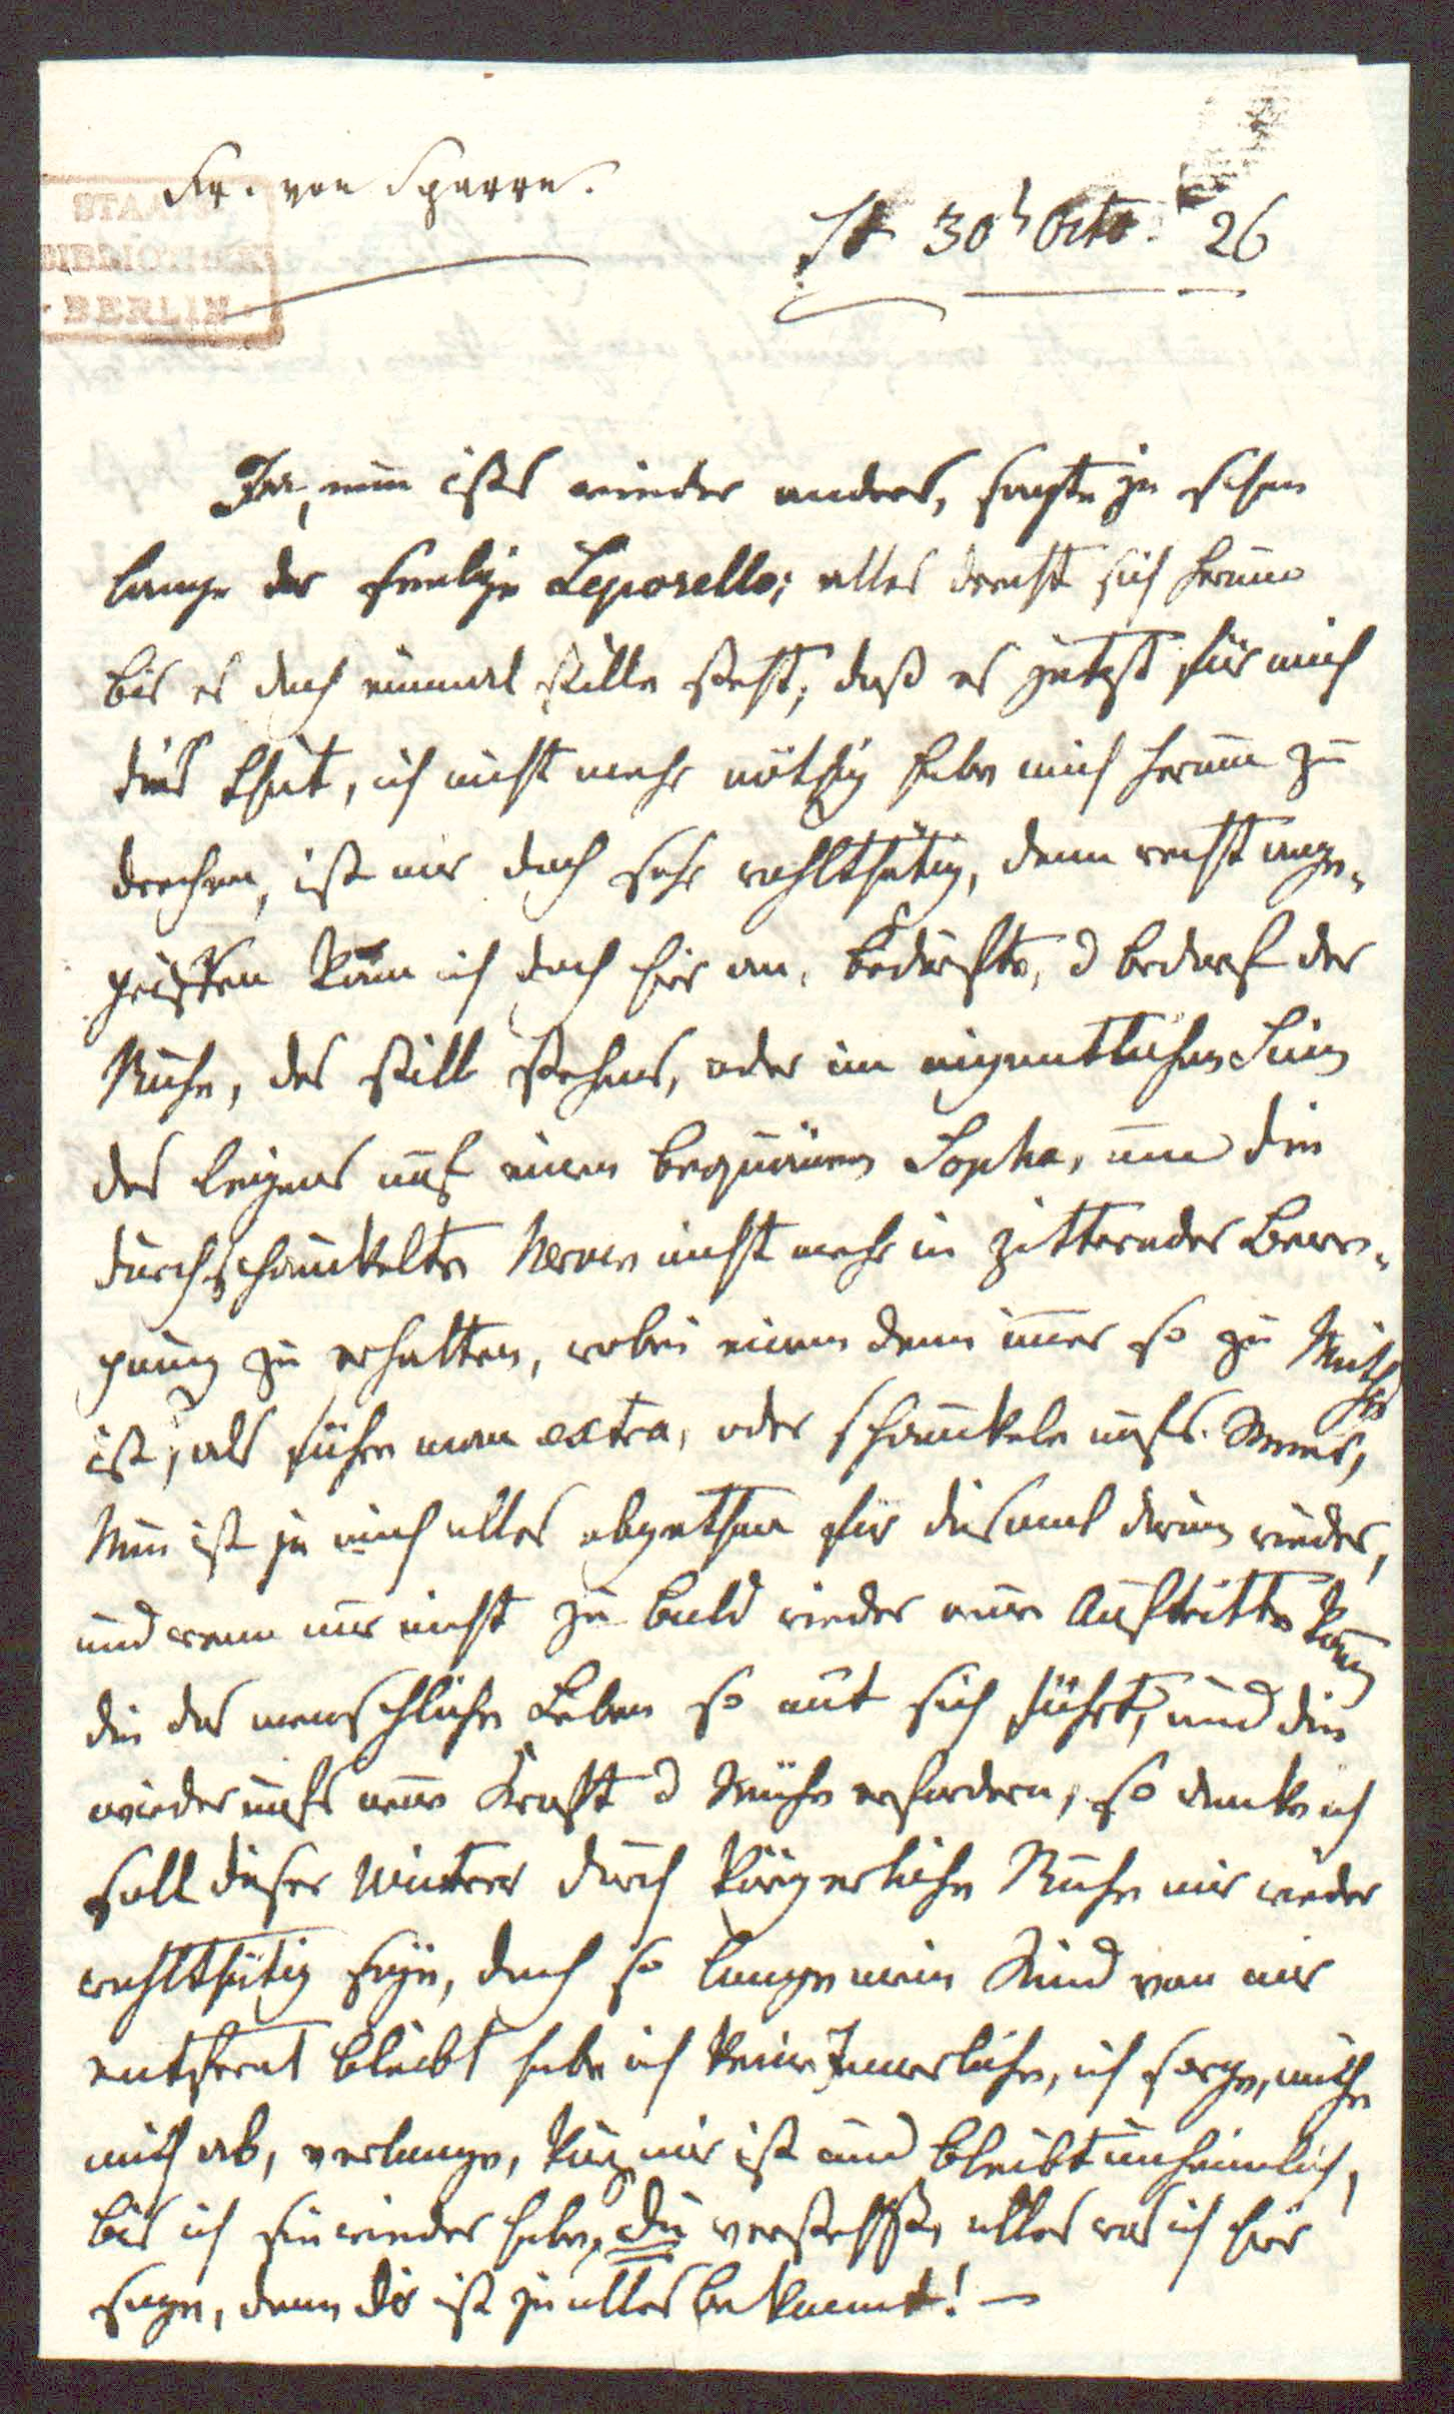 Fr. von Sparre.
STAATS
BIBLIOTHEK
BERLIN
St 30t Octo. 26
Ja, nun ists wieder anders, sagte ja schon
lange der seelige Leporello; alles dreht sich herum
bis es doch einmal stille steht, daß es jetzt für mich
dies thut, ich nicht mehr nöthig habe mich herum zu
drehen, ist mir doch sehr wohlthätig, denn recht ange-
griffen kam ich doch hier an, bedurfte, d bedarf der
Ruhe, des still stehens, oder im eigentlichen Sinn
des liegens auf einem bequämen Sopha, um die
durchschaukelte Nerven nicht mehr in zitternder Bewe-
gung zu erhalten, wobei einem denn imer so zu Muthe
ist, als führe man extra, oder schaukele aufs Meer,
Nun ist ja auch alles abgethan für diesmal darin wieder,
und wenn nur nicht zu bald wieder neue Auftritte kom̅en
die das menschliche Leben so mit sich führt, und die
wieder aufs neue Kraft d Mühe erfordern, so denke ich
soll dieser Winter durch körperliche Ruhe mir wieder
wohlthätig seyn, doch so lange mein Kind von mir
entfernt bleibt habe ich keine Innerliche, ich sorge, mühe
mich ab, verlange, kurz mir ist und bleibt unheimlich,
bis ich sie wieder habe, Du verstehst, alles was ich hier
sage, denn dir ist ja alles bekannt! —